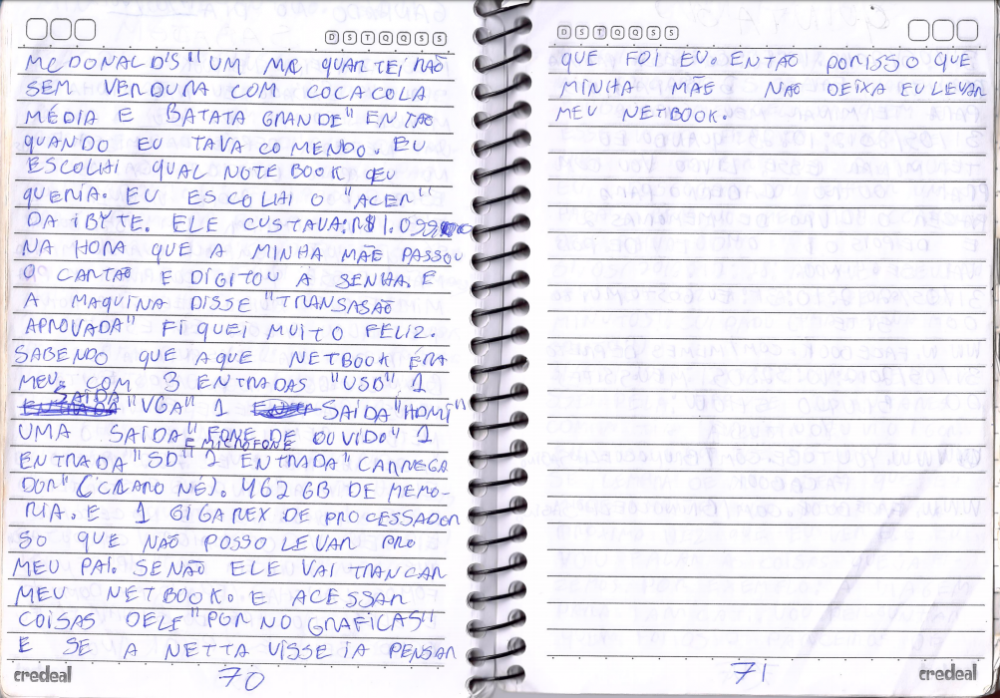 D S T Q Q S S
MCDONALD'S" UM MC QUARTEIRÃO
SEM VERDURA COM COCACOLA
MÉDIA E BATATA GRANDE" ENTÃO
QUANDO EU TAVA COMENDO. EU
ESCOLHI QUAL NOTEBOOK EU
QUERIA. EU ESCOLHI O "ACER"
DA IBYTE. ELE CUSTAVA: R$1.099
NA HORA QUE A MINHA MÃE PASSOU
O CARTÃO E DIGITOU A SENHA. E
A MAQUINA DISSE "TRANSASÃO
APROVADA" FIQUEI MUITO FELIZ.
SABENDO QUE AQUE NETBOOK ERA
MEU. COM 3 ENTRADAS "USB" 1
SAIDA "VGA" 1 SAIDA "HDMI"
UMA SAIDA "FONE DE OUVIDO" 1
E MICROFONE
ENTRADA "SD" 1 ENTRADA "CARREGA
DOR" (CLARO NÉ). 462 GB DE MEMO-
RIA. E 1 GIGAREX DE PROCESSADOR
SO QUE NÃO POSSO LEVAR PRO
MEU PAI. SENÃO ELE VAI TRANCAR
MEU NETBOOK. E ACESSAR
COISAS DELE "PORNOGRAFICAS"
E SE A NETTA VISSE IA PENSAR
credeal
70
D S T Q Q S S
QUE FOI EU. ENTÃO PORISSO QUE
MINHA MÃE NÃO DEIXA EU LEVAR
MEU NETBOOK.
71
credeal